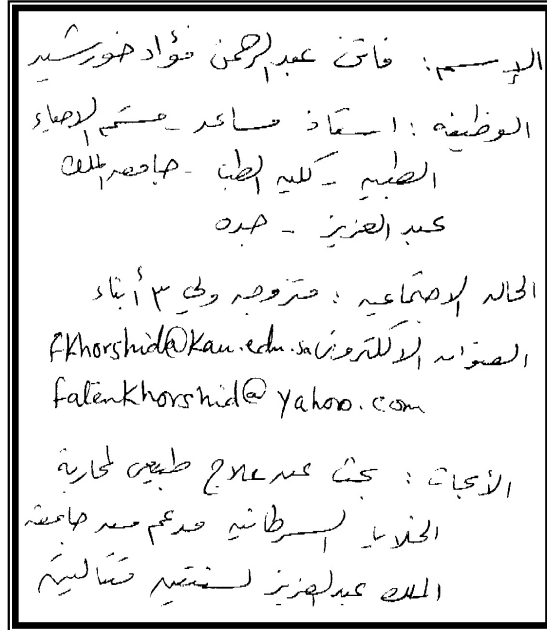 الإسم: فاتن عبدالرحمن فؤاد خورشيد
الوظيفه: استاذ مساعد - قسم الاحياء
الطبيه - كليه الطب - جامعه الملك
عبد العزيز - جده
الحاله الاجتماعيه: متزوجه ولي ٣ أبناء
العنوان الالكتروني fkhorshid@kau.edu.sa
fatenkhorshid@yahoo.com
الأبحاث: بحث عن علاج طبيعي لمحاربة
الخلايا السرطانيه مدعم من جامعة
الملك عبدالعزيز لسنتين متتاليتين